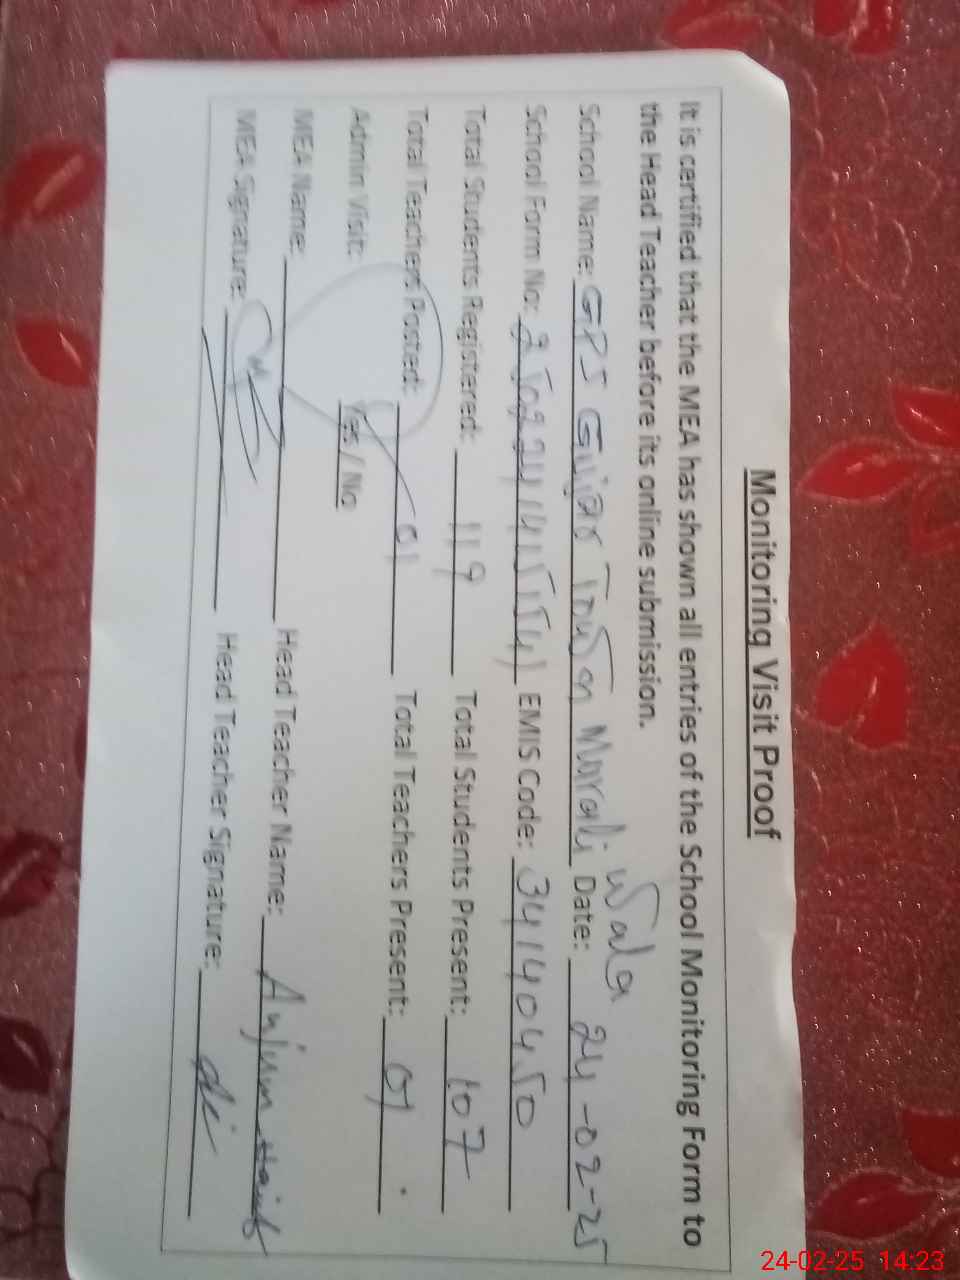 Monitoring Visit Proof
It is certified that the MEA has shown all entries of the School Monitoring Form to
the Head Teacher before its online submission.
School Name: GPS Gujar Marali Wala Date: 24-02-25
School Form No: EMIS Code: 34140450
Total Students Registered: 119 Total Students Present: 107
Total Teachers Posted: 01 Total Teachers Present: 01
Admin Visit: Yes / No
MEA Name: Head Teacher Name: Anjum
MEA Signature: Head Teacher Signature:
24-02-25 14:23